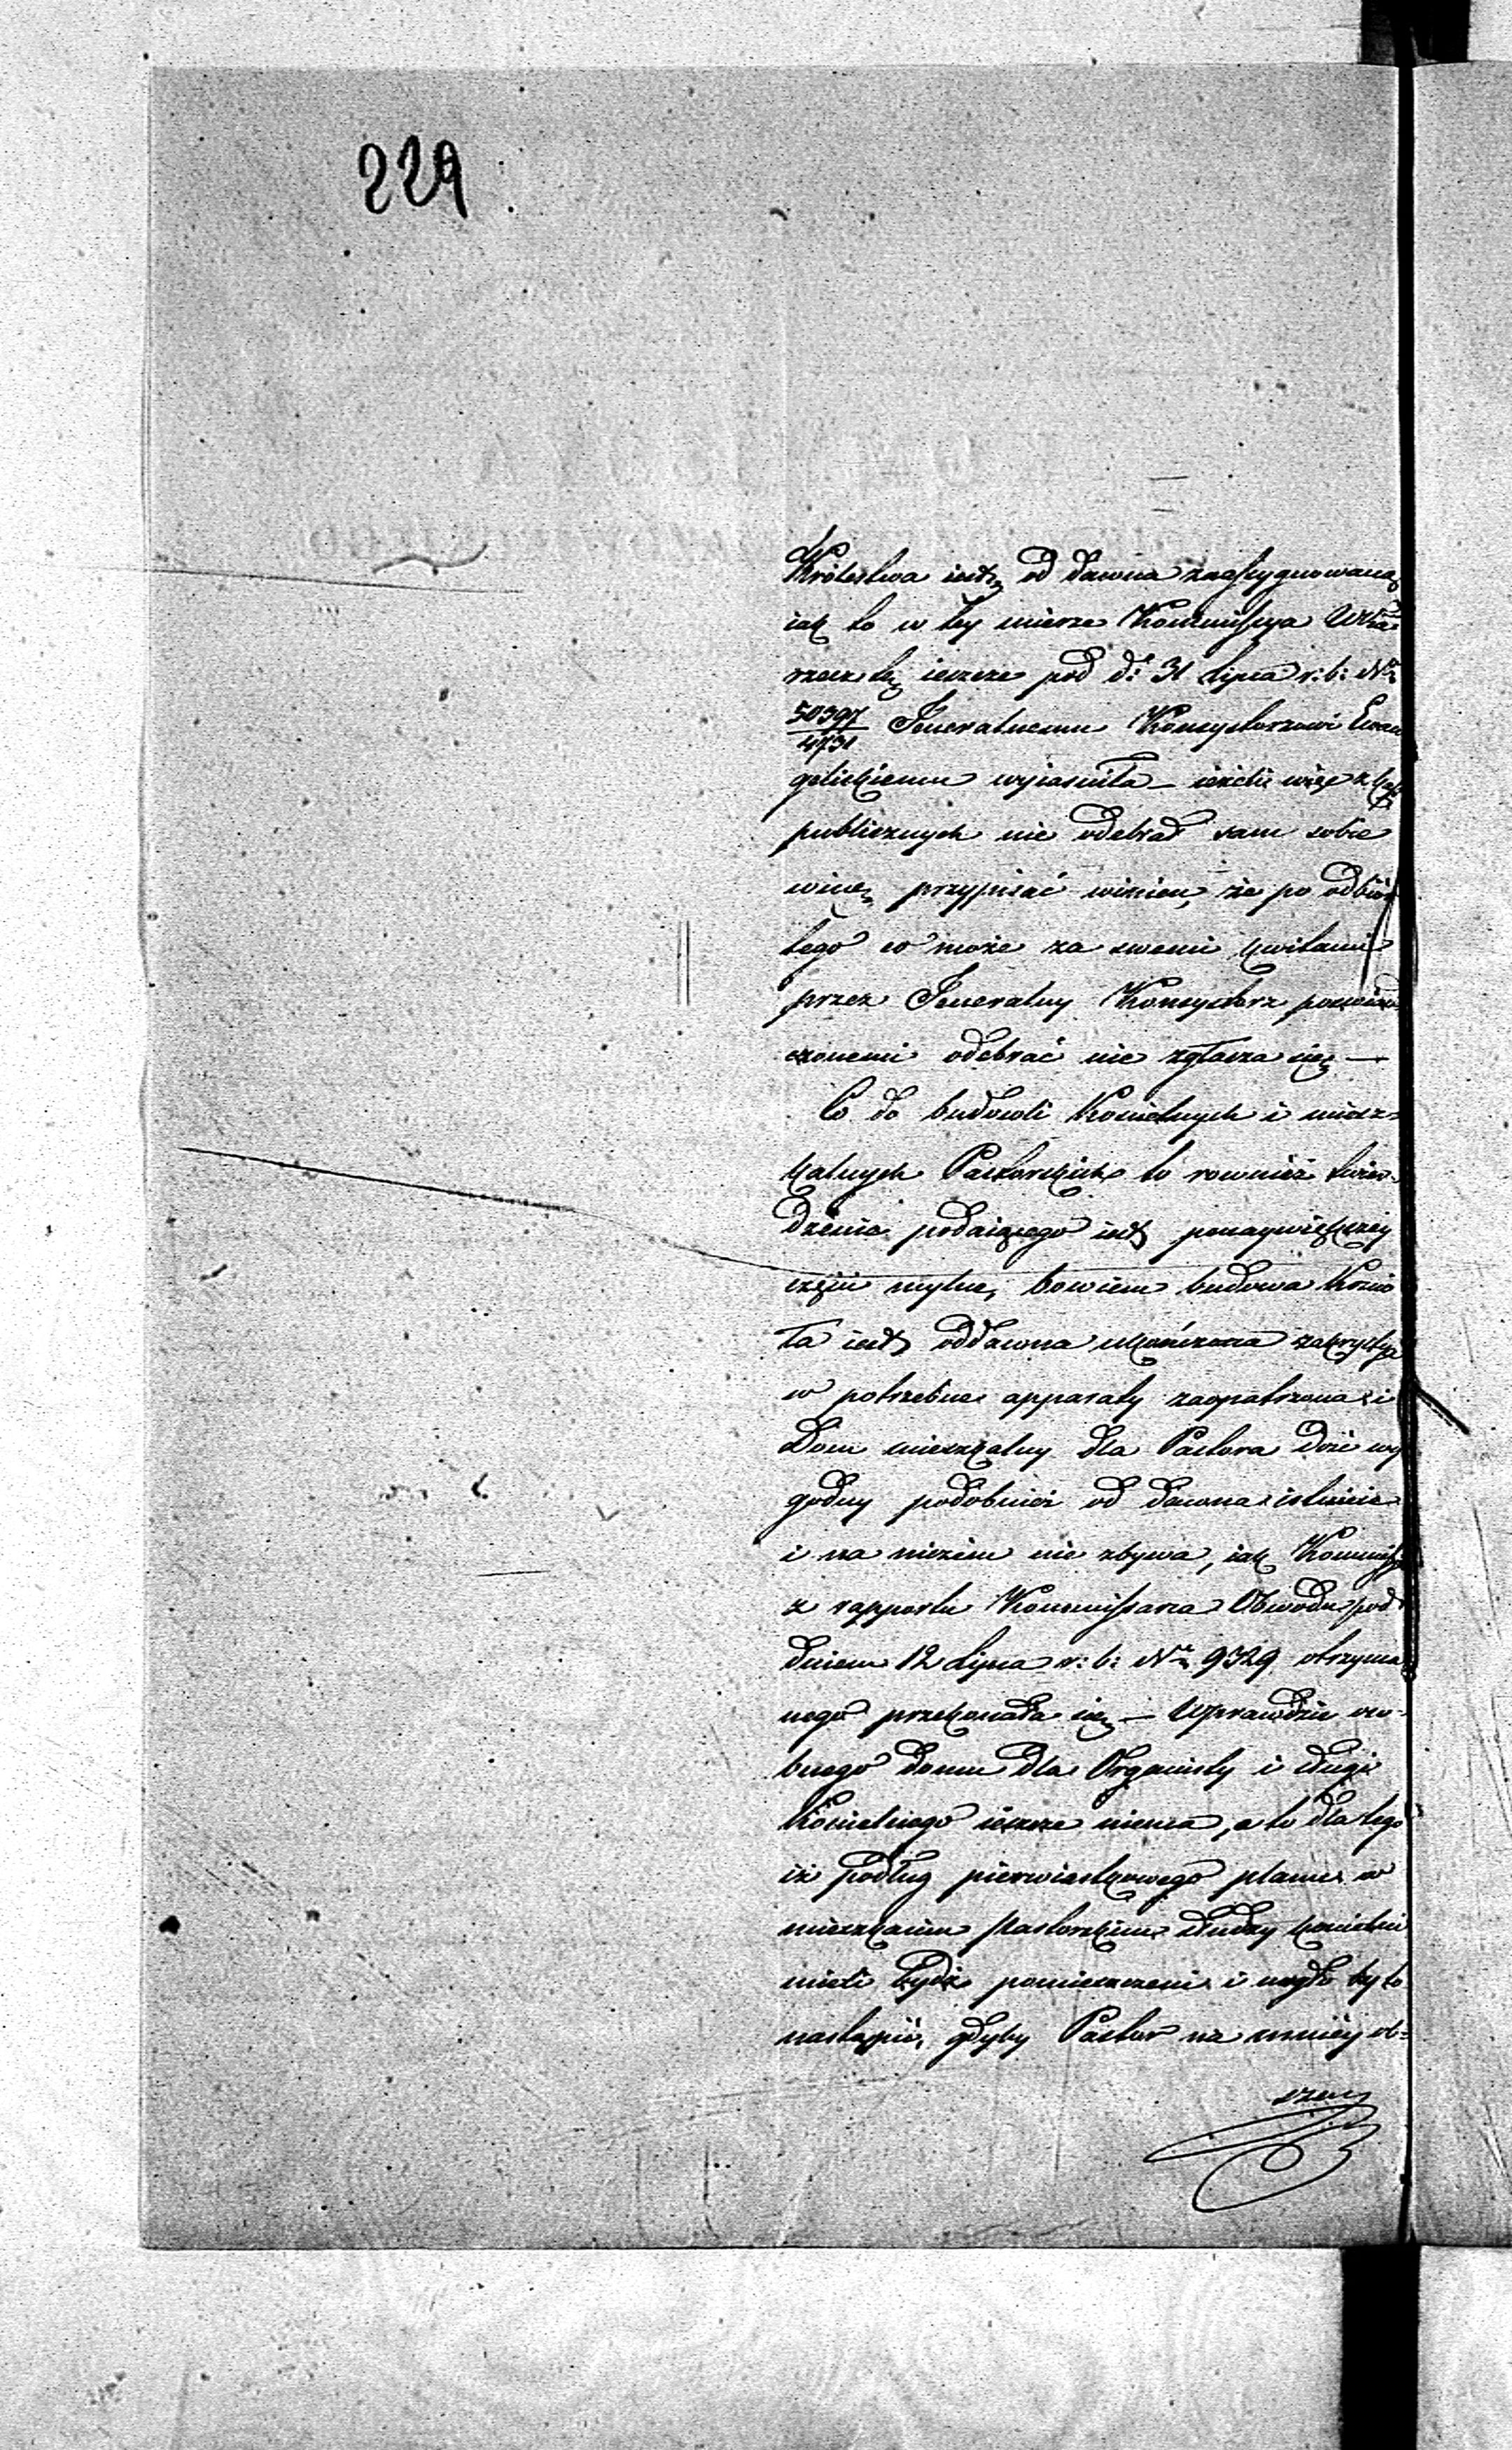 229
Królestwa iest, od dawna zaassygnowaną
iak to w tey mierze Kommissya
rzeczkę ieszcze pod d: 31 lipca r: b: Nr
50397/4731 Jeneralnemu Konsystorzowi Ewan
gelickiemu wyiaśniła – ieżeli więc z kass
publicznych nie odebrał sam sobie
winę przypisać winien, że po odbiór
tego co może za swemi kwitami
przez Jeneralny Konsystorz poświad
czonemi odebrać nie zgłasza się —
Co do budowli Kościelnych i miesz-
kalnych Pastorskich to rownież twier-
dzenie podaiącego iest ponaywiększey
części mylne, bowiem budowa Kościo
ła iest oddawna ukończona zakrystya
w potrzebne apparaty zaopatrzona i
Dom mieszkalny dla Pastora dość wy
godny podobnież od dawna istnieie
i na niczem nie zbywa, iak Kommiss
z rapportu Kommissarza Obwodu pod
dniem 12 Lipca r: b: Nr 9329 otrzyma
nego przekonała się – Wprawdzie oso-
bnego domu dla Organisty i sługi
Kościelnego ieszcze niema, a to dla tego
iż podług pierwiastkowego planu w
mieszkaniu Pastorskim słudzy kościelni
mieli bydź pomieszczeni i mogło by to
nastąpić, gdyby Pastor na mniéy ob-
szer